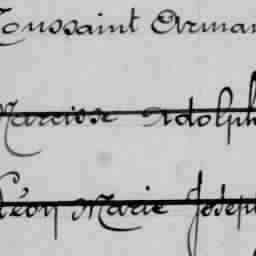 Toussaint Arman
Narcisse Adolph
Léon Marie Josep